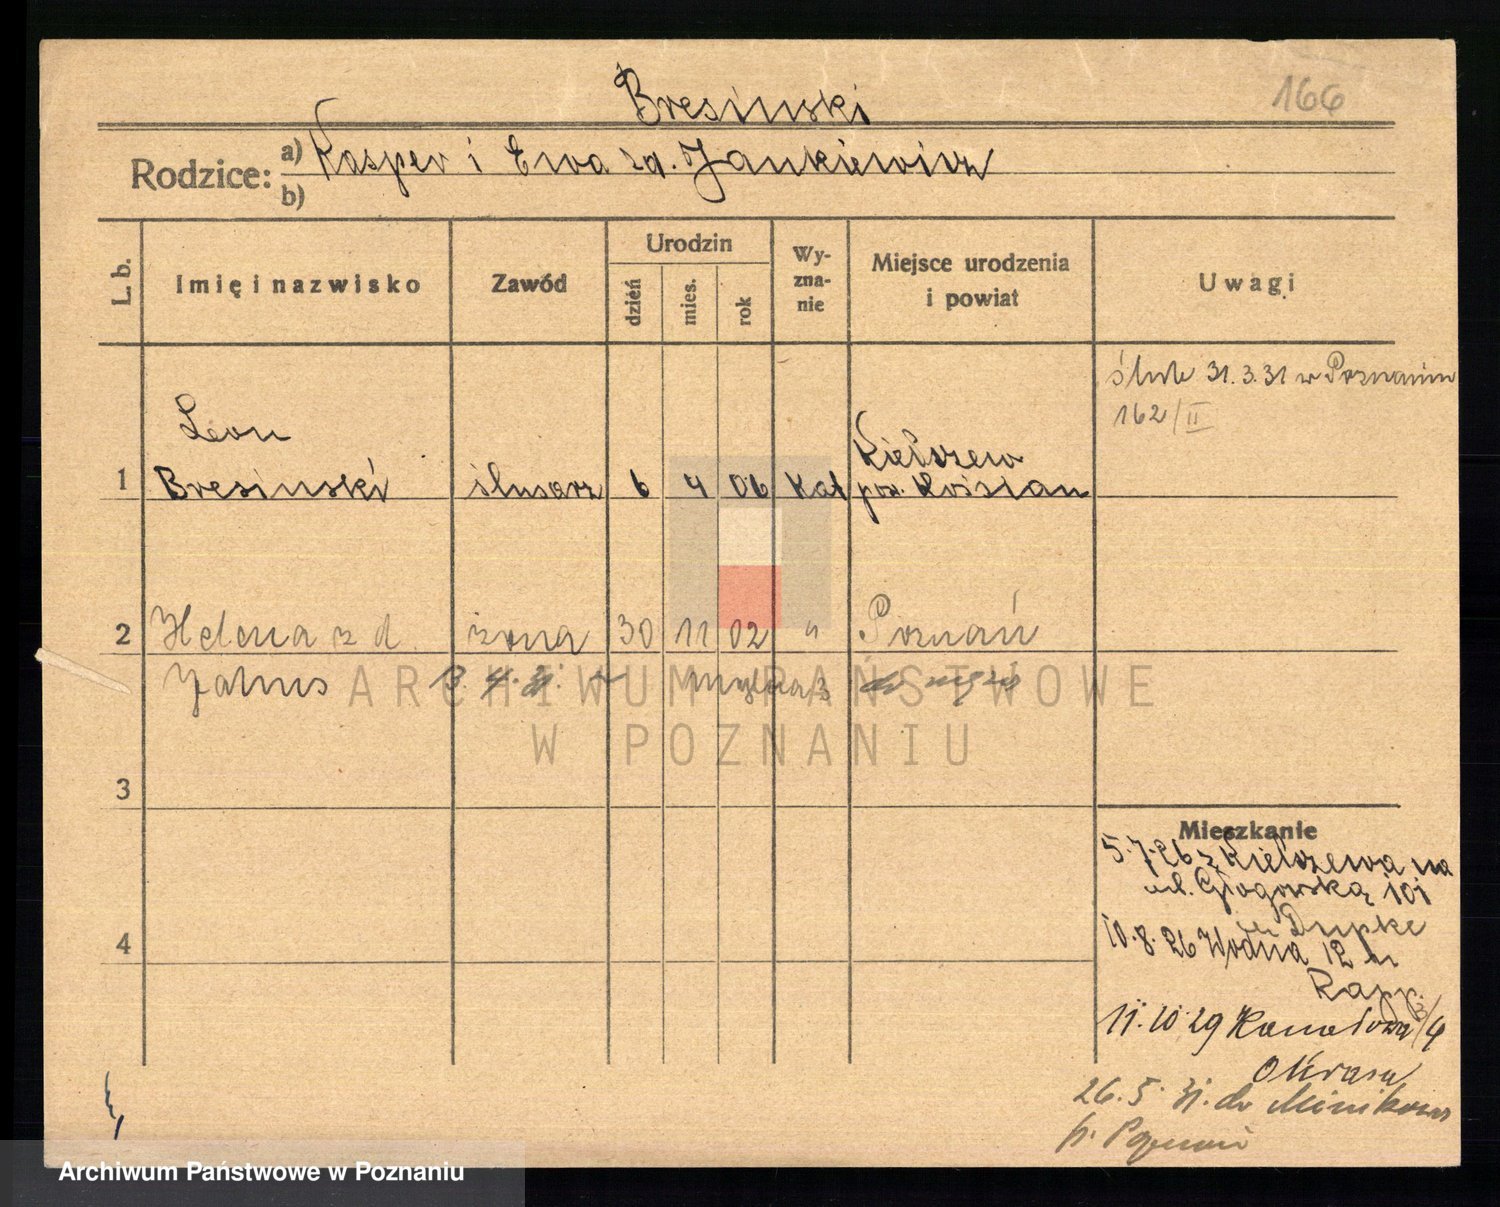 Bresinski
166
Rodzice:
a) Kasper i Ewa zd. Jankiewicz
b)
L. b.
Imię i nazwisko
Zawód
Urodzin
dzień
mies.
rok
Wy-
zna-
nie
Miejsce urodzenia
i powiat
Uwagi
ślub 31.3.31 w Poznaniu
162/II
Leon
1 Bresinski ślusarz 6 4 06 kat
Kiełczewo
pow. Kościan
2 Helena z d. żona 30 11 02 " Poznań
Jahns 3.4.31. do męża
ARCHIWUM PAŃSTWOWE
W POZNANIU
3
4
Mieszkanie
5.7.26 z Kiełczewa na
ul. Głogowską 101
Dupke
10.8.26 Wodna 12
Rapp.
11.10.29 Kanałowa 4
Okrasa
26.5.31. do Minikowo
p. Poznań
Archiwum Państwowe w Poznaniu